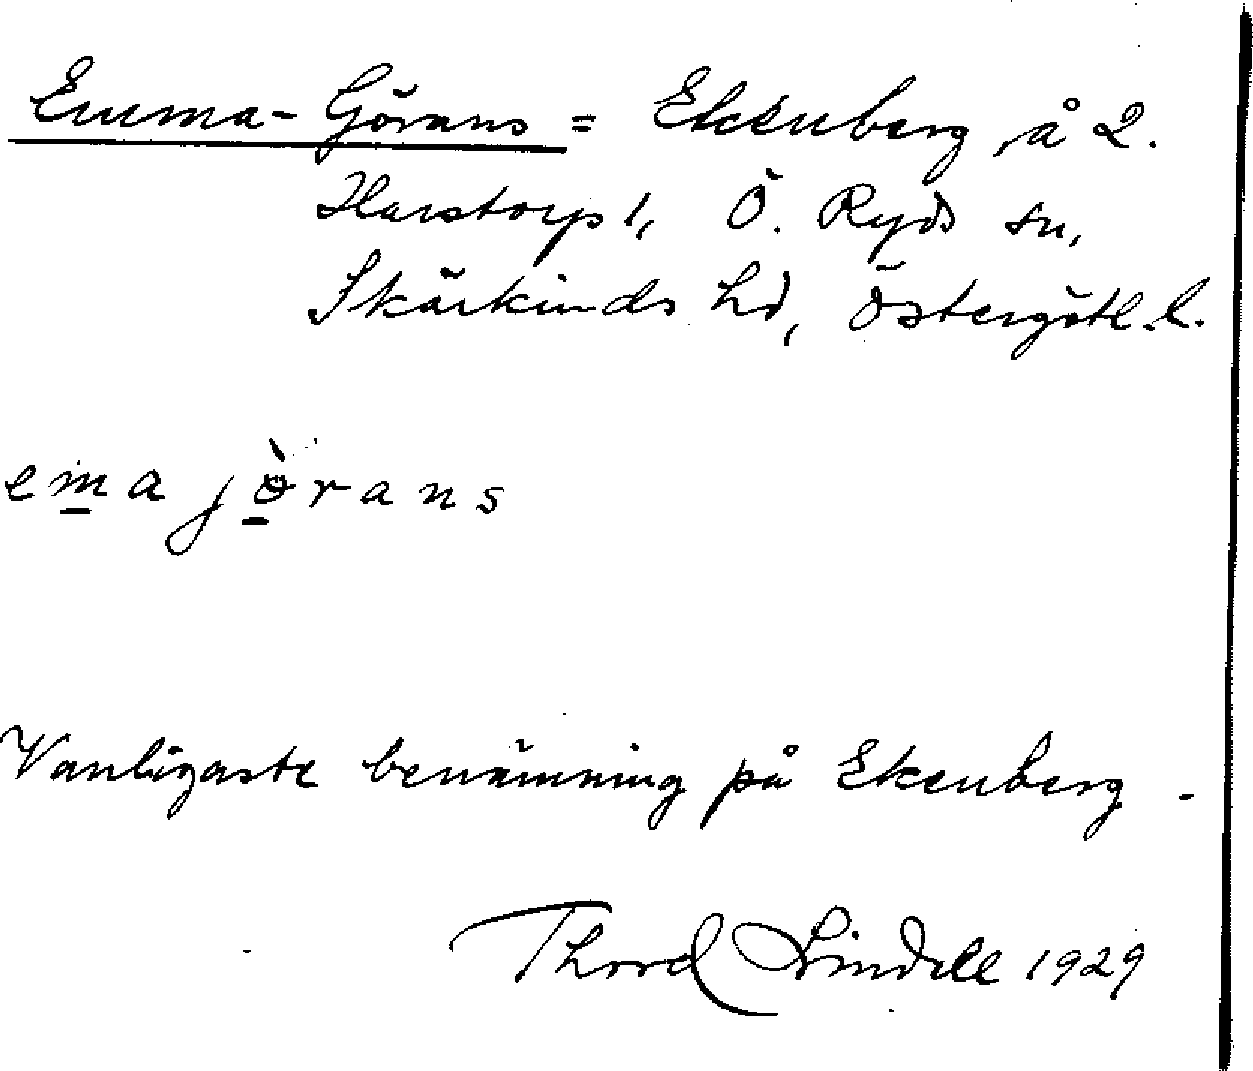 Emma-Görans = Ekenberg, å L.
Harstorp 1, Ö. Ryds sn,
Skärkinds hd, Östergötl. l.
ema jòrans
Vanligaste benämning på Ekenberg.
Thord Lindell 1929